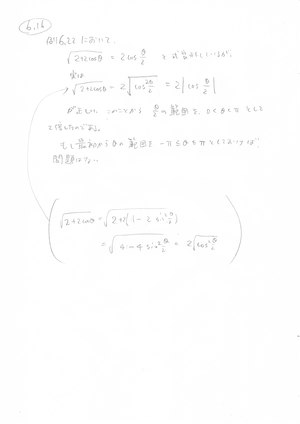 6.16
例6.23 において、
√(2+2cosθ) = 2cos θ/2 と
実は
√(2+2cosθ) = 2√(cos² θ/2) = 2|cos θ/2|
が正しい。このことから θ/2 の範囲を 0<θ<π として
のである。
もし最初からθの範囲を -π≦θ≦π としておけば
問題はない。
√(2+2cosθ) = √(2+2(1-2sin² θ/2))
= √(4-4sin² θ/2) = 2√(cos² θ/2)